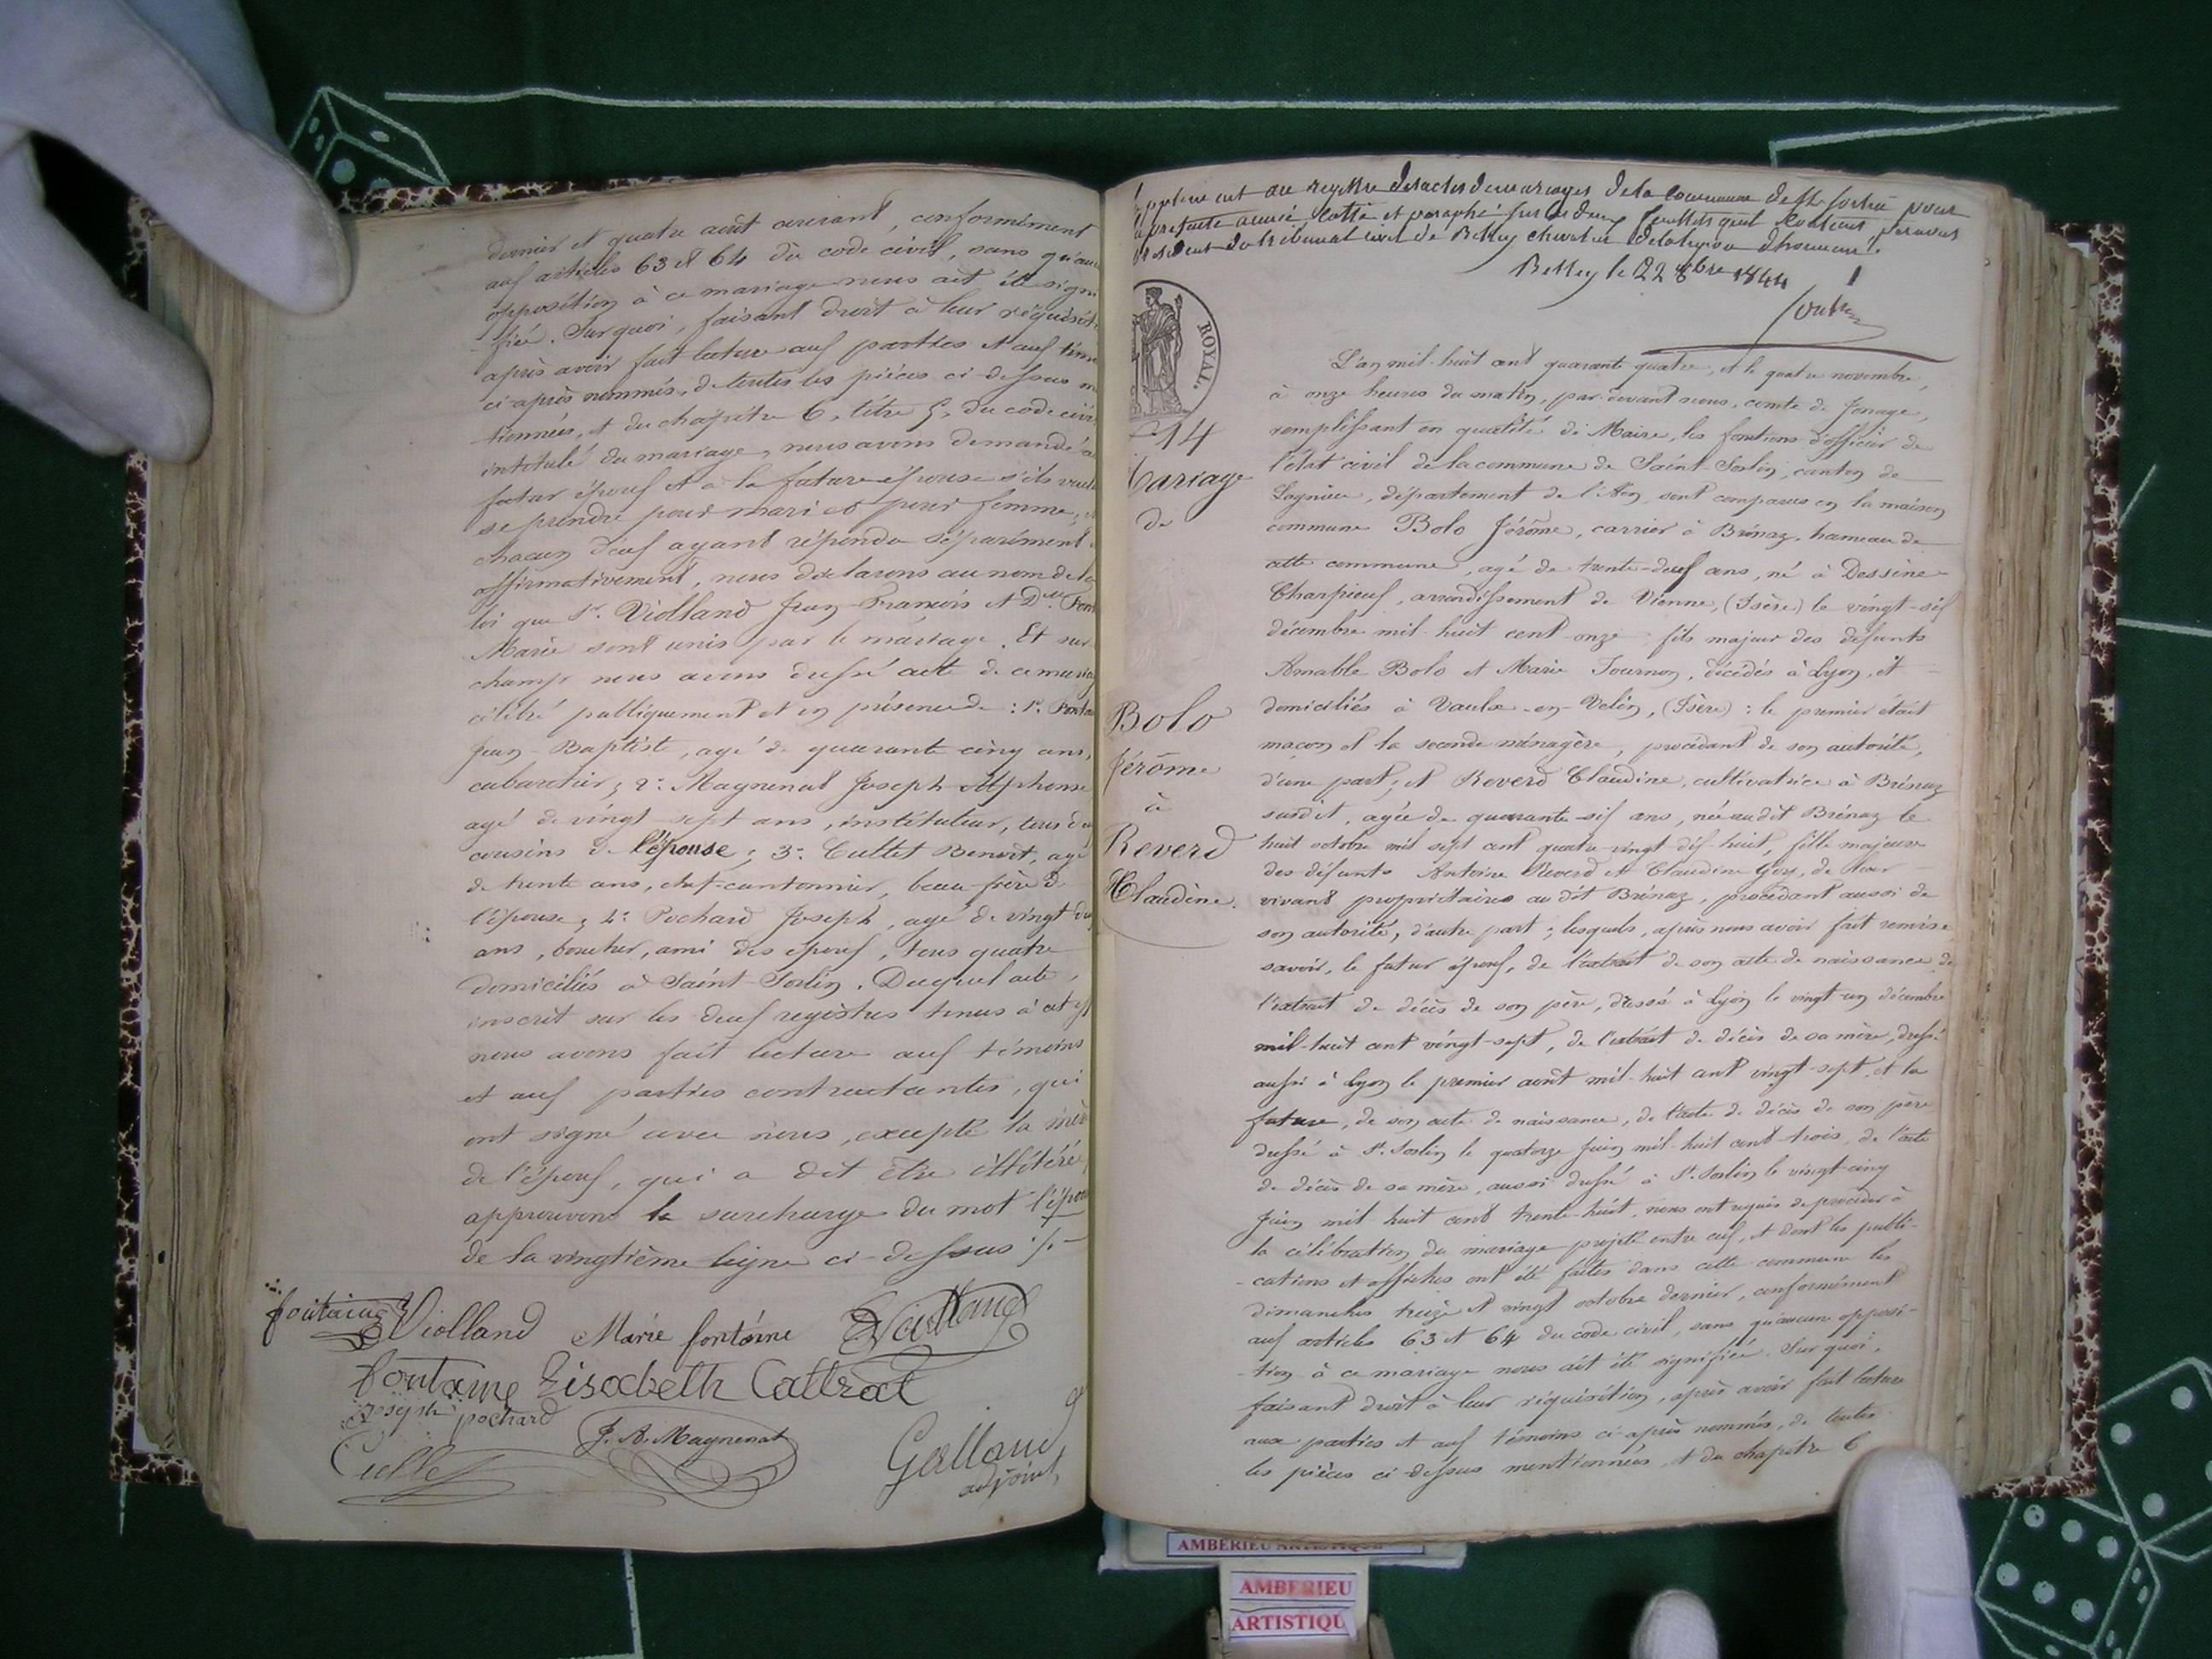 dernier et quatre août courant, conformément
auf articles 63 et 64 du code civil, sans qu'aucune
opposition à ce mariage nous ait été signi
fiée. Sur quoi, faisant droit à leur réquisit
après avoir fait lecture auf parties et auf tém
ci-après nommés, de toutes les pièces ci-dessus m
tionnées, et du chapitre 6, titre 5, du code civil
intitulé du mariage, nous avons demandé a
futur épouf et à la future épouse s'ils veul
se prendre pour mari et pour femme,
chacun d'euf ayant répondu séparément
affirmativement, nous déclarons au nom de la
loi que Sr. Violland Jean-François et Dlle. Font
Marie sont unis par le mariage. Et sur
champ nous avons dressé acte de ce mariag
célébré publiquement et en présence de : 1º. Fontai
Jean-Baptiste, agé de quarante cinq ans,
cabaretier; 2º. Magnenat Joseph-Alphonse
agé de vingt-sept ans, instituteur, tous deux
cousins de l'épouse; 3º. Cullet Benoit, agé
de trente ans, chef-cantonnier, beau-frère de
l'épouse; 4º. Pochard Joseph, agé de vingt deux
ans, boucher, ami des épouf, tous quatre
domiciliés à Saint-Sorlin. Duquel acte,
inscrit sur les deuf registres tenus à cet
nous avons fait lecture auf témoins
et auf parties contractantes, qui
ont signé avec nous, excepté la mère
de l'épouf, qui a dit être illitéré
approuvons la surcharge du mot l'épou
de la vingtième ligne ci-dessus ./.
fontaine Violland Marie fontaine Violland
fontaine Elisabeth Cattrat
Joseph pochard J. A. Magnenat
Cullet Galland
adjoint
au registre des actes de mariages de la commune de St Sorlin pour
la présente année cotté et paraphé sur les deux feuillets qu'il contient par nous
Président du tribunal civil de Belley chevalier de la légion d'honneur.
Belley le 22 8bre 1844
ROYAL.
14
Mariage
de
Bolo
Jérôme
à
Reverd
Claudine.
L'an mil-huit cent quarante-quatre, et le quatre novembre,
à onze heures du matin, par-devant nous, comte de Jonage,
remplissant en qualité de Maire, les fonctions d'officier de
l'état civil de la commune de Saint-Sorlin, canton de
Lagnieu, département de l'Ain, sont comparus en la maison
commune Bolo Jérôme, carrier à Brénaz, hameau de
cette commune, agé de trente-deuf ans, né à Dessine-
Charpieuf, arrondissement de Vienne, (Isère) le vingt-sif
décembre mil-huit cent-onze, fils majeur des défunts
Amable Bolo et Marie Tournon, décédés à Lyon, et
domiciliés à Vaulx-en-Velin, (Isère) : le premier était
maçon et la seconde ménagère, procédant de son autorité,
d'une part; et Reverd Claudine, cultivatrice à Brénaz
susdit, agée de quarante-sif ans, née au dit Brénaz le
huit octobre mil sept cent quatre-vingt-dif-huit, fille majeure
des défunts Antoine Reverd et Claudine Goy, de leur
vivant propriétaires au dit Brénaz, procédant aussi de
son autorité, d'autre part; lesquels, après nous avoir fait remise
savoir, le futur épouf, de l'extrait de son acte de naissance, de
l'extrait de décès de son père, dressé à Lyon le vingt-un décembre
mil-huit cent vingt-sept, de l'extrait de décès de sa mère, dressé
aussi à Lyon le premier août mil-huit cent vingt-sept, et la
future, de son acte de naissance, de l'acte de décès de son père
dressé à St. Sorlin le quatorze juin mil-huit cent-trois, de l'acte
de décès de sa mère, aussi dressé à St. Sorlin le vingt-cinq
juin mil huit cent trente-huit, nous ont requis de procéder à
la célébration du mariage projeté entre euf, et dont les publi-
-cations et affiches ont été faites dans cette commune les
dimanches treize et vingt octobre dernier, conformément
auf articles 63 et 64 du code civil, sans qu'aucune opposi-
-tion à ce mariage nous ait été signifiée. Sur quoi,
faisant droit à leur réquisition, après avoir fait lecture
aux parties et auf témoins ci-après nommés, de toutes
les pièces ci-dessus mentionnées, et du chapitre 6
AMBERIEU ARTISTIQUE
AMBERIEU
ARTISTIQU